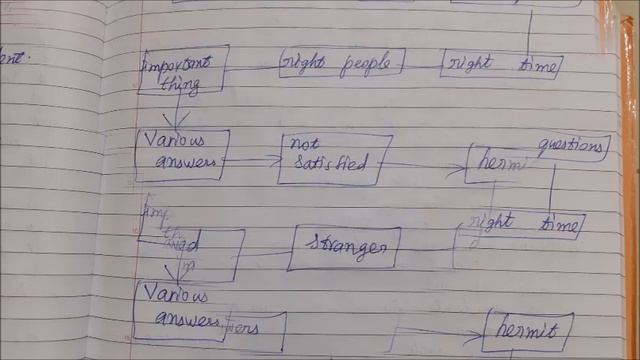 ent.
important right people right time
thing
Various not questions
answers satisfied herm
right time
stranger
Various
answers ers hermit